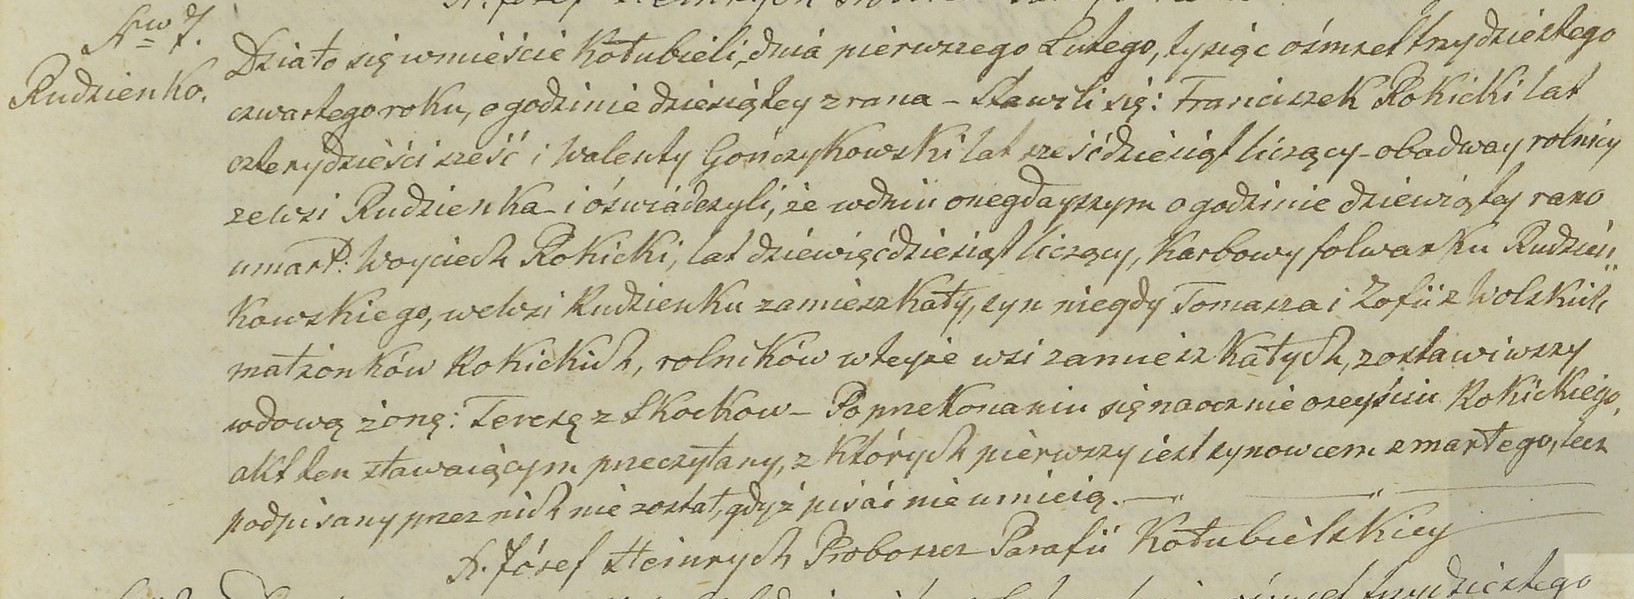 Nro 7.
Rudzienko.
Działo się w mieście Kołubieli, dnia pierwszego Lutego, tysiąc ośmset trzydziestego
czwartego roku, o godzinie dziesiątey z rana – Stawili się: Franciszek Rokicki lat
czterydzieści sześć i Walenty Gończykowski lat sześćdziesiąt liczący – obadway rolnicy
ze wsi Rudzienka – i oświadczyli, że w dniu onegdayszym o godzinie dziewiątey rano
umarł: Woyciech Rokicki, lat dziewięćdziesiąt liczący, karbowy folwarku Rudzień„
kowskiego, we wsi Rudzienku zamieszkały, syn niegdy Tomasza i Zofii z Wolskich
małżonków Rokickich, rolników w teyże wsi zamieszkałych, zostawiwszy
wdową żonę: Teresę z Skockow – Po przekonaniu się naocznie o zeyściu Rokickiego,
akt ten stawaiącym przeczytany, z których pierwszy iest synowcem zmarłego, lecz
podpisany przez nich nie został, gdyż pisać nie umieią. —
X. Józef Heinrych Proboszcz Parafii Kołubielskiey